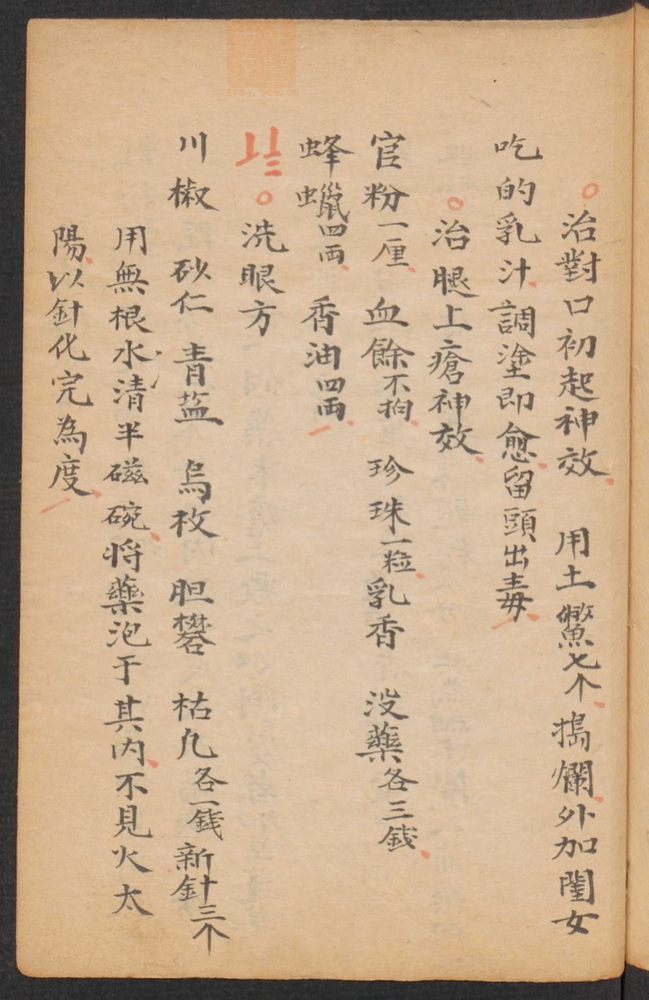 治對口初起神效 用土鱉七个搗爛外加閨女
吃的乳汁調塗即愈留頭出毒
治腿上瘡神效
官粉一厘 血餘不拘 珍珠一粒 乳香 沒藥各三錢
蜂蠟四両 香油四両
洗眼方
川椒 砂仁 青盐 烏枚 胆礬 枯凡各一錢 新針三个
用無根水清半磁碗將藥泡于其內不見火太
陽以針化完為度